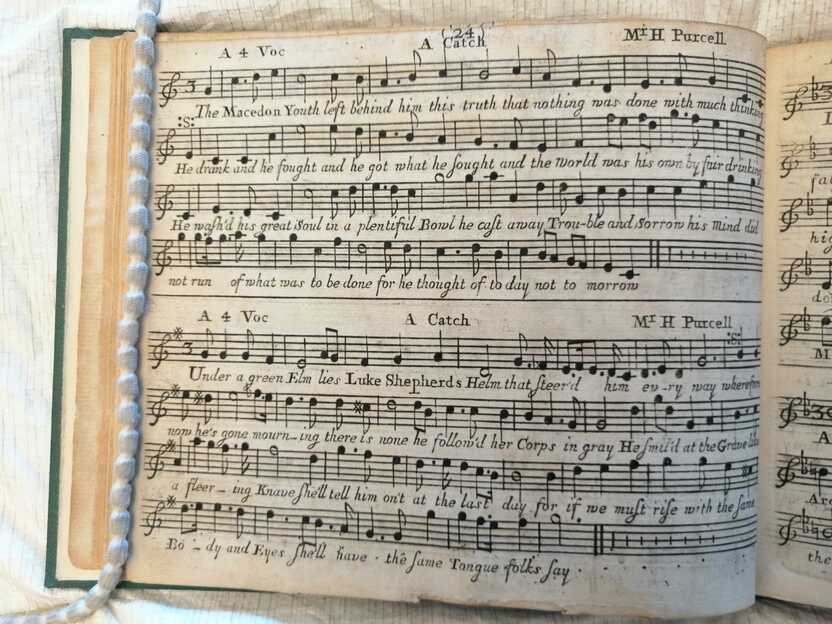 (24)
A 4 Voc A Catch Mr H Purcell
3
The Macedon Youth left behind him this truth that nothing was done with much thinking
:S:
He drank and he fought and he got what he ſought and the World was his own by fair drinking
He waſh'd his great Soul in a plentifúl Bowl he caſt away Trou-ble and Sorrow his mind did
not run of what was to be done for he thought of to day not to morrow
A 4 Voc A Catch Mr H Purcell
3 :S:
Under a green Elm lies Luke Shepherds Helm that ſteer'd him ev-ry way wherefore
now he's gone mourn-ing there is none he follow'd her Corps in gray He ſmil'd at the Grave like
a fleer-ing Knave ſhe'll tell him on't at the laſt day for if we muſt riſe with the ſame
Bo-dy and Eyes ſhe'll have the ſame Tongue folks ſay.